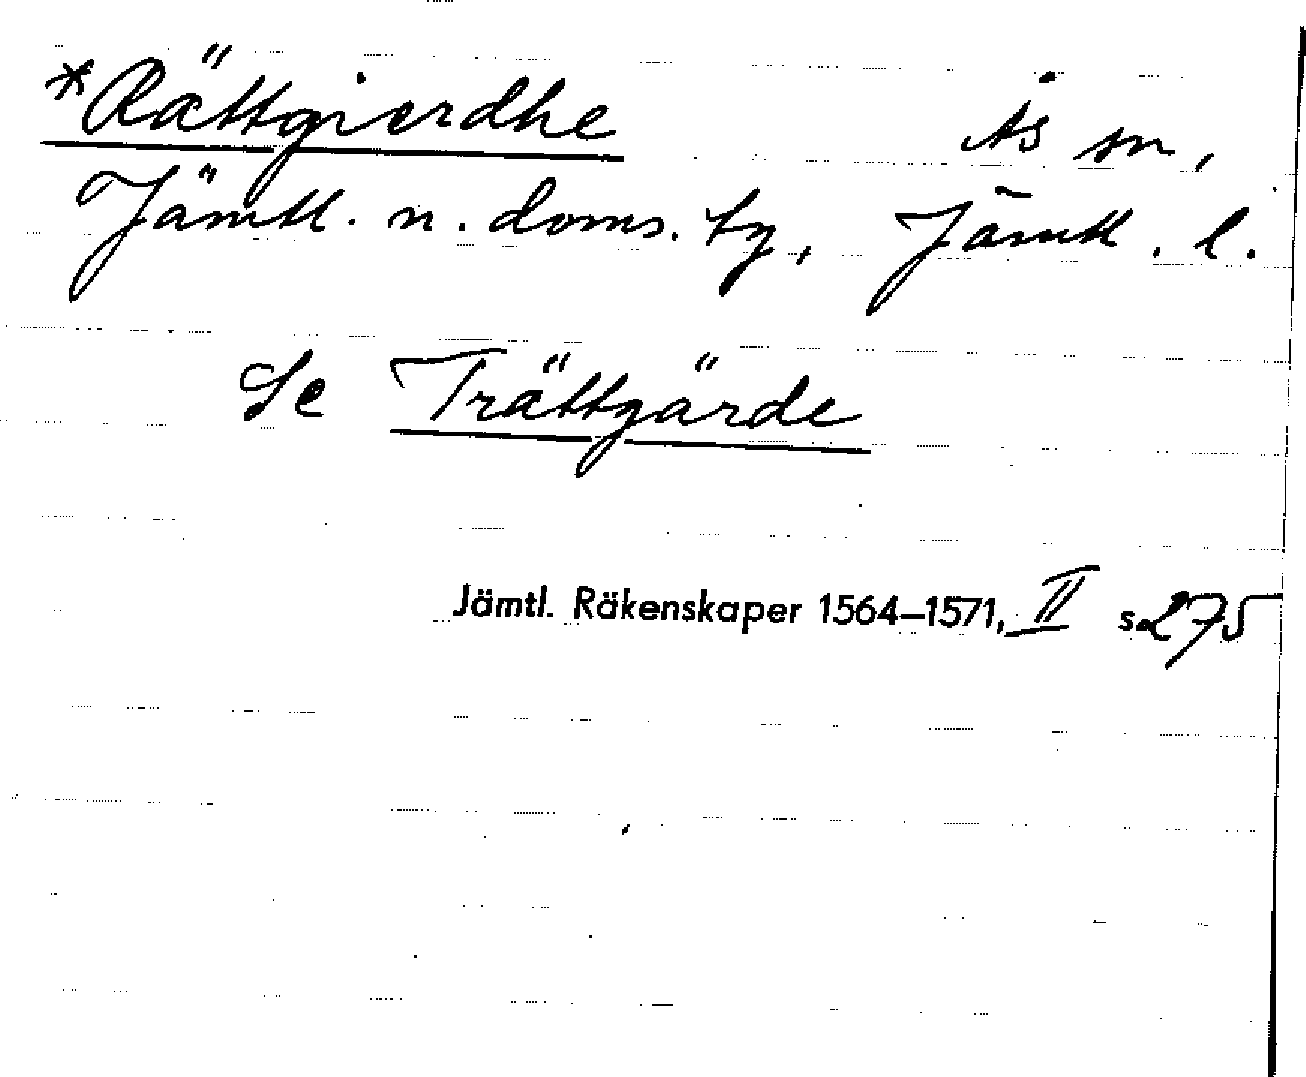 *Rättgierdhe Ås sn,
Jämtl. n. doms. tg, Jämtl. l.
Se Trättgärde
Jämtl. Räkenskaper 1564–1571, II s. 275